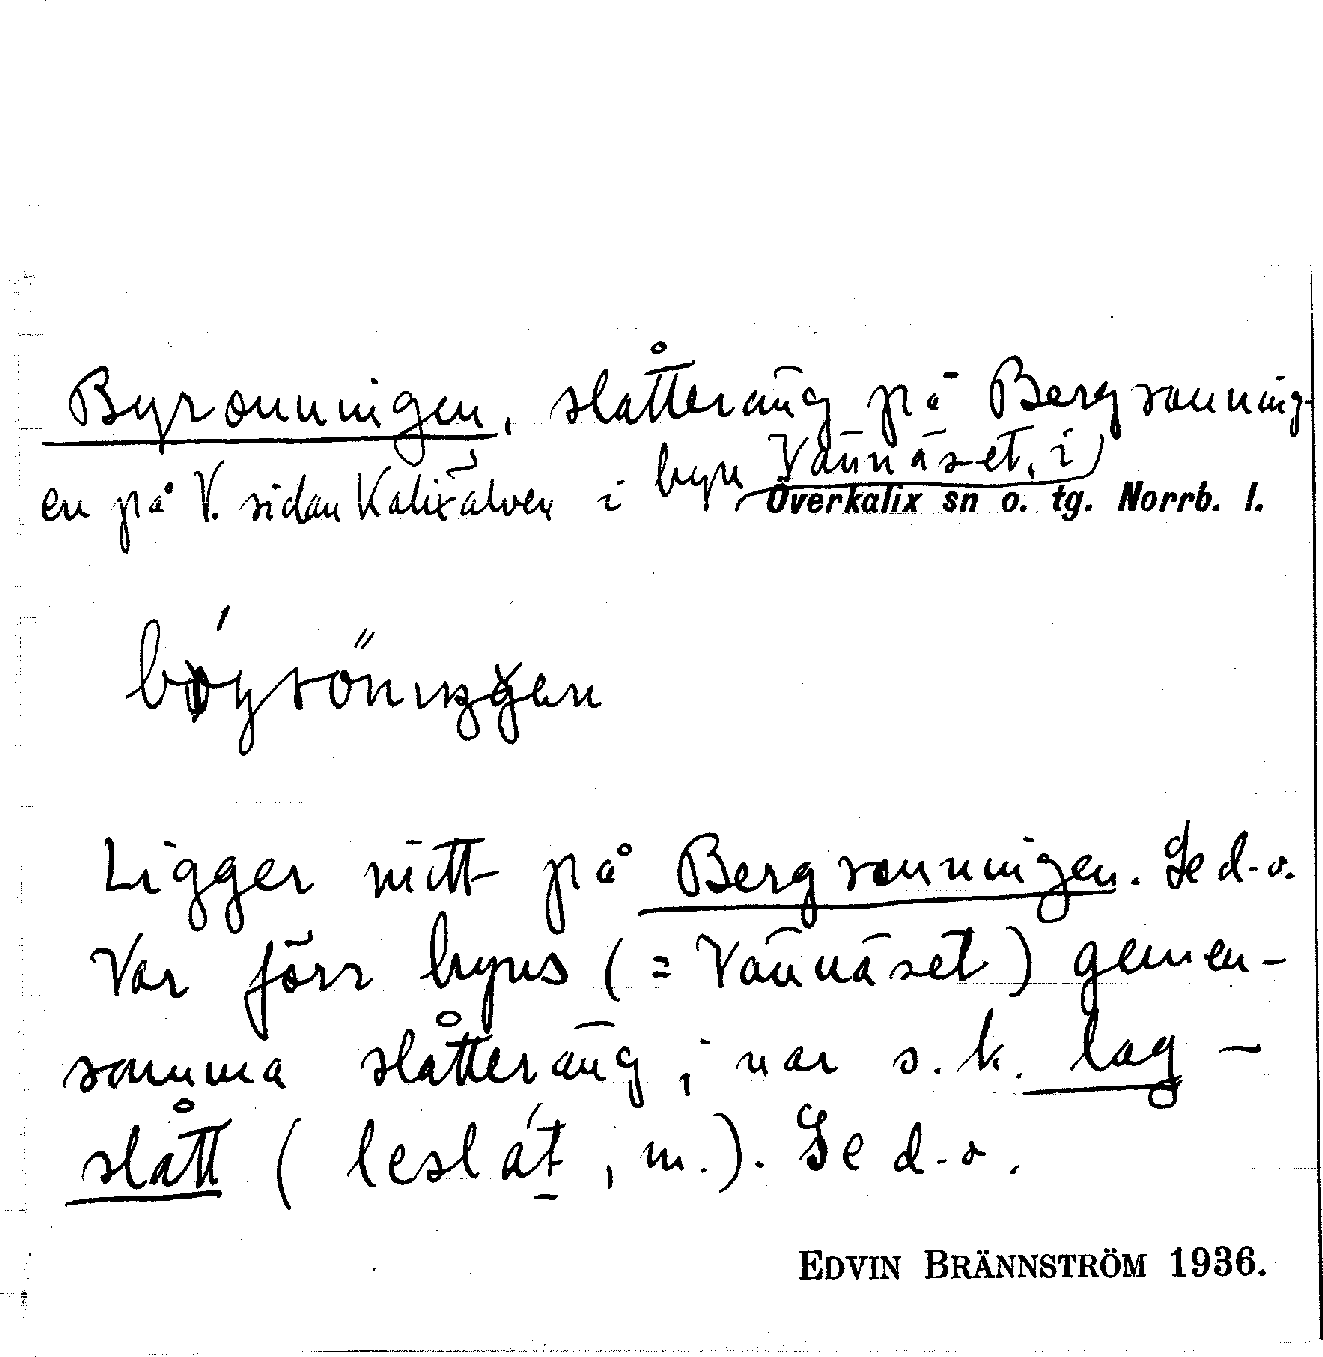 Byronningen, slåtteräng på Bergronning-
en på V. sidan Kalixälven i byn Vännäset, i
Överkalix sn o. tg. Norrb. l.
Ligger mitt på Bergronningen. Se d.o.
Var förr byns (= Vännäset) gemen-
samma slåtteräng; var s.k. lag-
slått (leslát, m.). Se d.o.
EDVIN BRÄNNSTRÖM 1936.